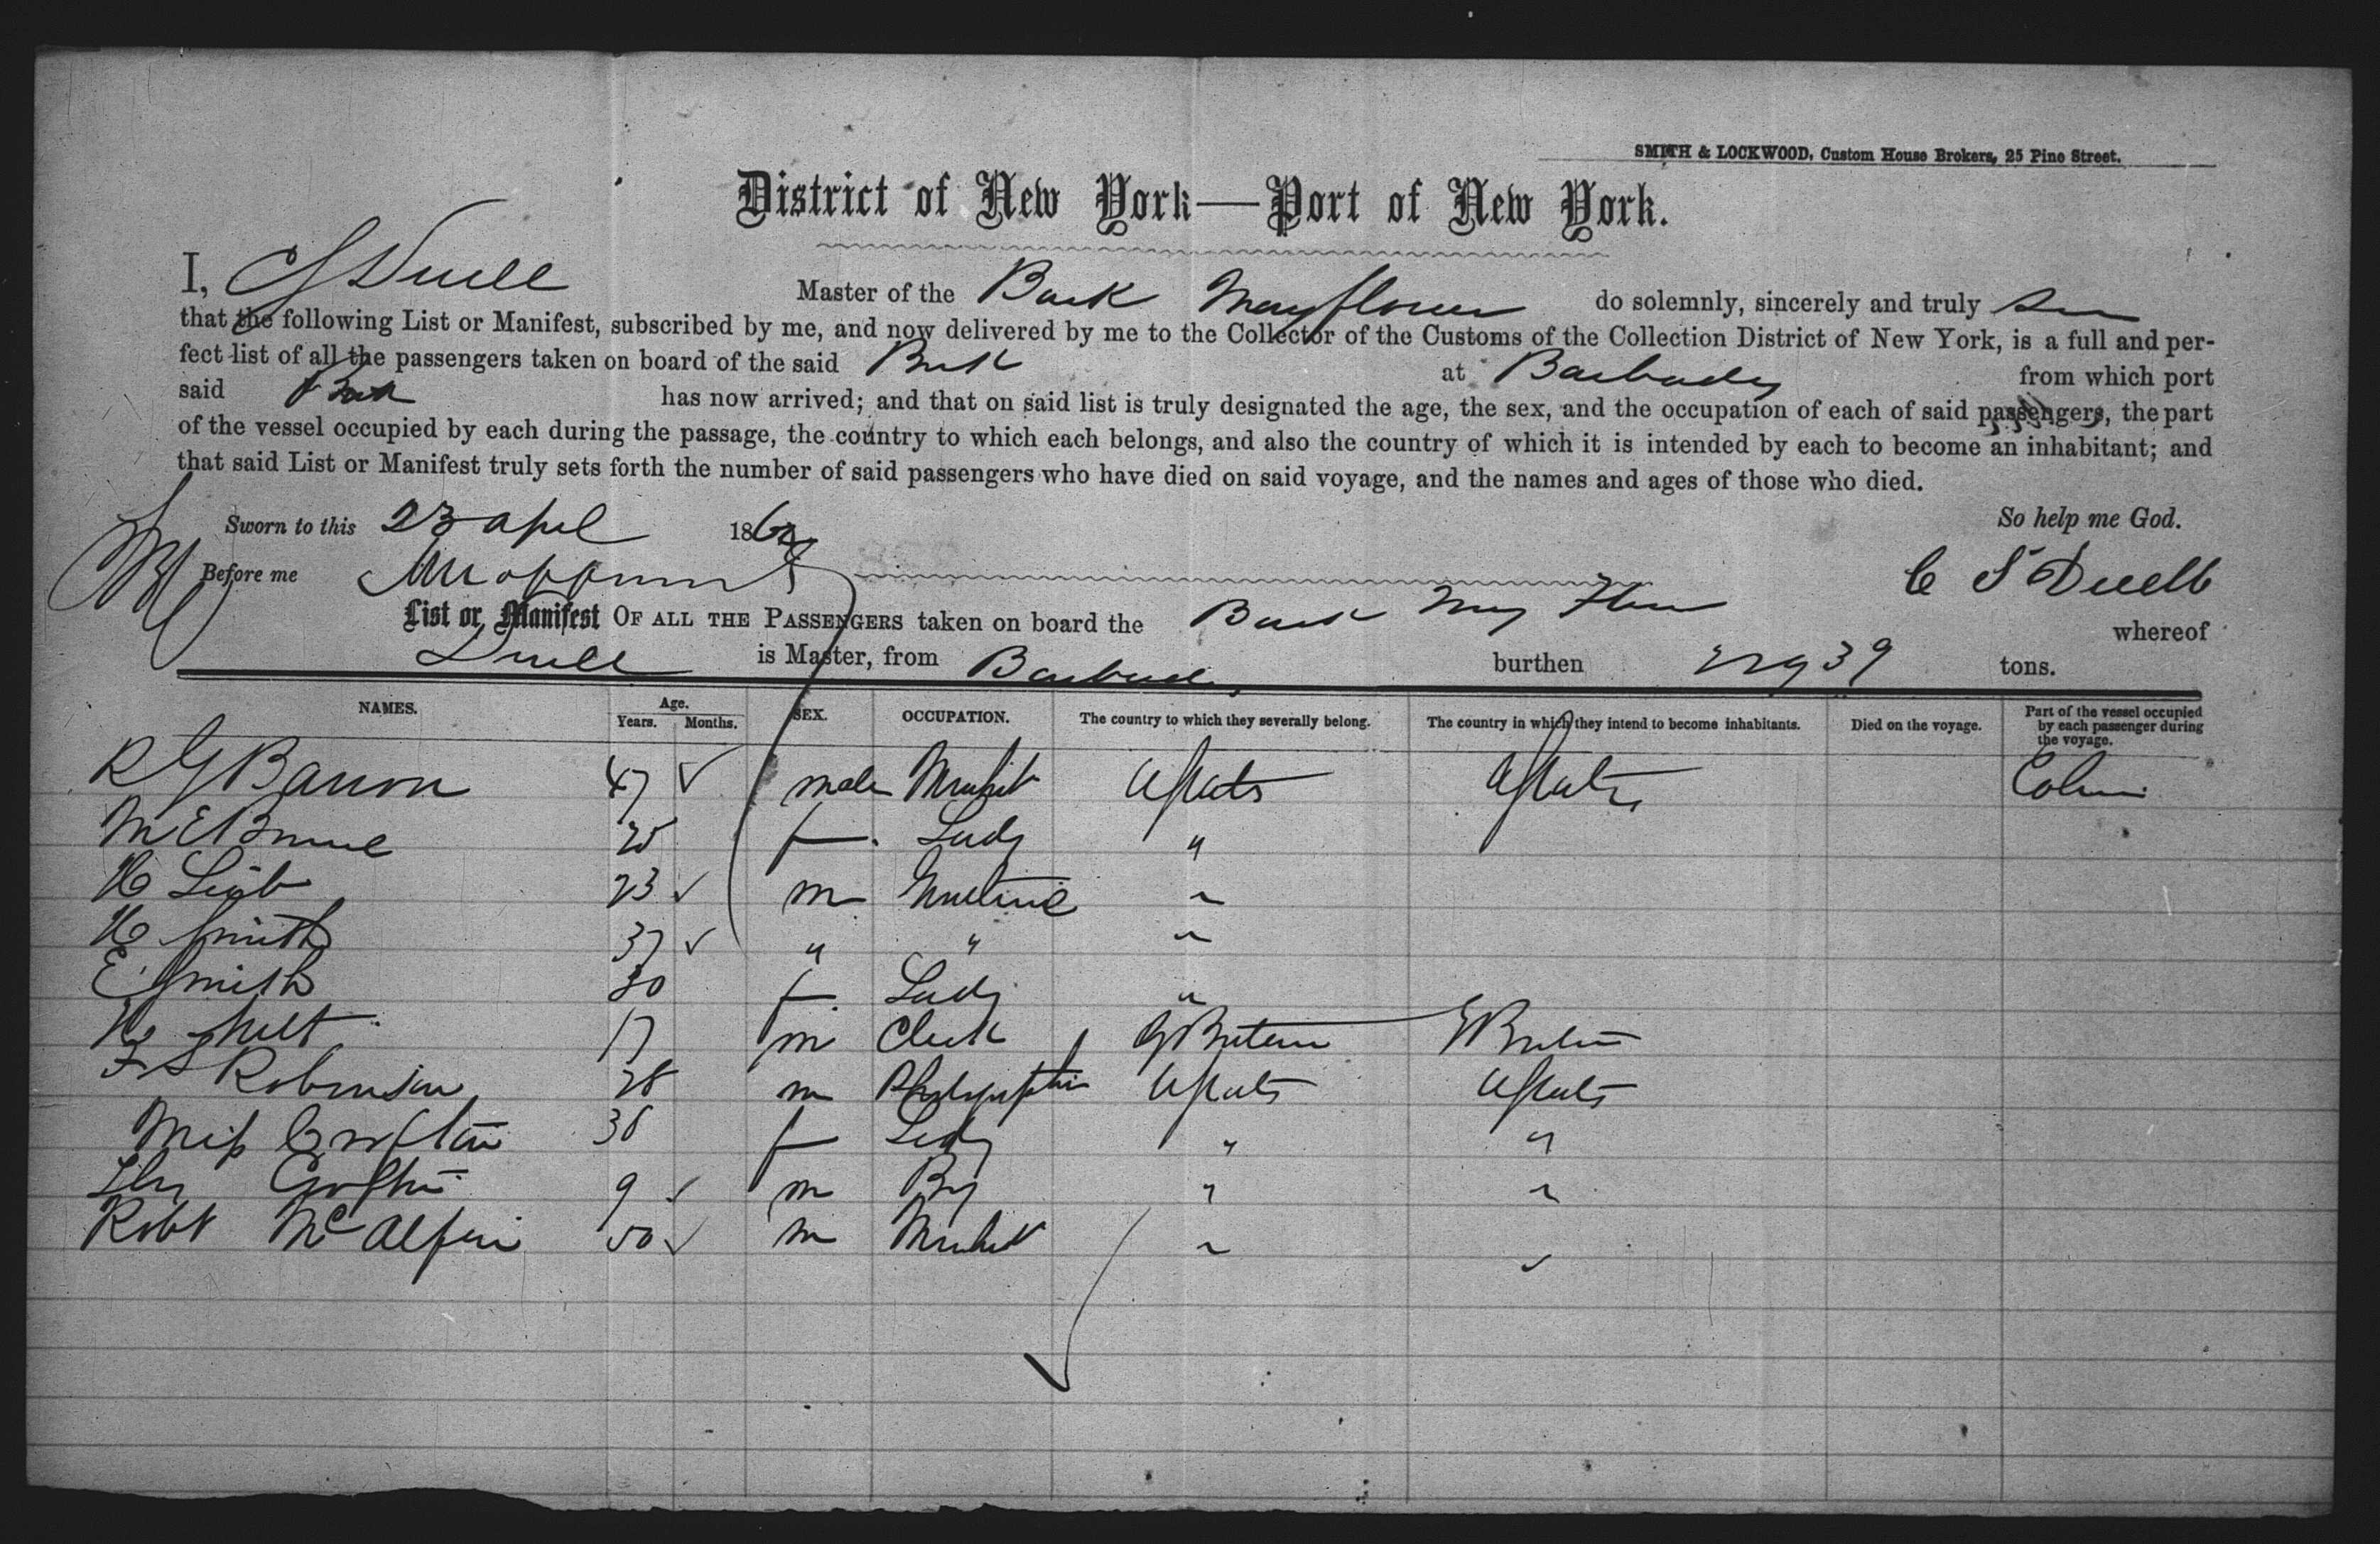 SMITH & LOCKWOOD, Custom House Brokers, 25 Pine Street.
District of New York—Port of New York.
I, C S Duell Master of the Bark Mayflower do solemnly, sincerely and truly
that the following List or Manifest, subscribed by me, and now delivered by me to the Collector of the Customs of the Collection District of New York, is a full and per-
fect list of all the passengers taken on board of the said Bark at Barbados from which port
said Bark has now arrived; and that on said list is truly designated the age, the sex, and the occupation of each of said passengers, the part
of the vessel occupied by each during the passage, the country to which each belongs, and also the country of which it is intended by each to become an inhabitant; and
that said List or Manifest truly sets forth the number of said passengers who have died on said voyage, and the names and ages of those who died.
Sworn to this 23 April 186 So help me God.
Before me C S Duell
List or Manifest OF ALL THE PASSENGERS taken on board the Bark May Flower whereof
Duell is Master, from Barbados burthen tons.
NAMES. Age. Years. Months. SEX. OCCUPATION. The country to which they severally belong. The country in which they intend to become inhabitants. Died on the voyage. Part of the vessel occupied by each passenger during the voyage.
R G Barron 47 male UStates UStates
M E 25 f. Lady "
H 23 m "
H Smith 37 " " "
E Smith 30 f Lady "
H 17 m Clerk G Britain G Britain
F S Robinson 28 m UStates UStates
Miss 38 f Lady " "
9 m Boy " "
Robt McAlpin 50 m " "